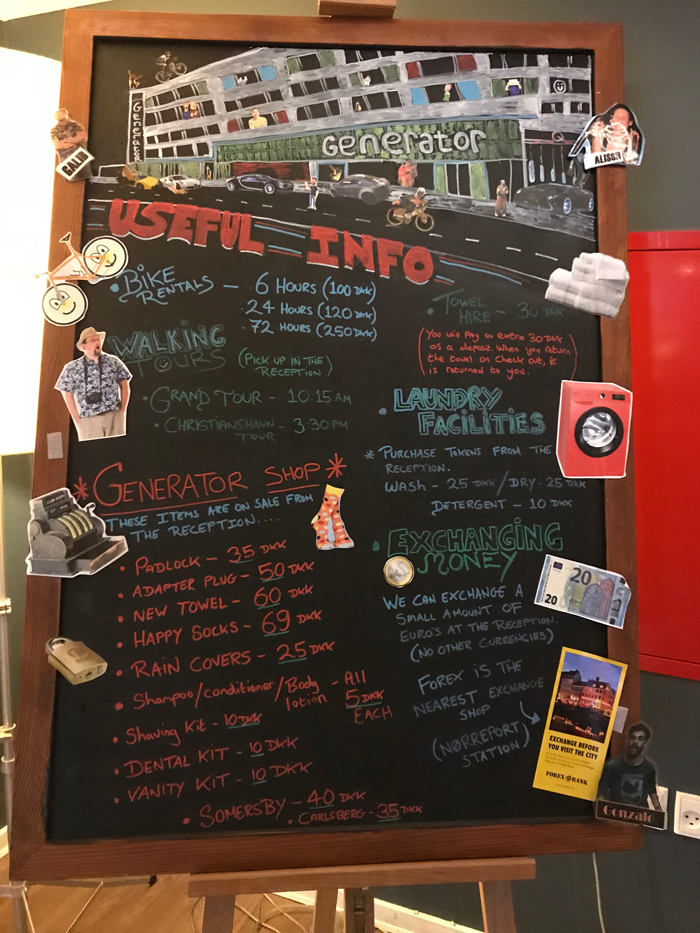 Generator
Generator
CALU
ALISON
USEFUL INFO
• BIKE RENTALS – 6 HOURS (100 DKK)
24 HOURS (120 DKK)
72 HOURS (250 DKK)
• TOWEL
HIRE – 30 DKK
(You will Pay an extra 30 DKK
as a deposit. When you return
the towel on Check out, it
is returned to you.)
WALKING
TOURS (PICK UP IN THE
RECEPTION)
• GRAND TOUR – 10:15 AM
• CHRISTIANSHAVN – 3:30 PM
TOUR
• LAUNDRY
FACILITIES
* PURCHASE TOKENS FROM THE
RECEPTION.
WASH – 25 DKK / DRY - 25 DKK
DETERGENT – 10 DKK
* GENERATOR SHOP *
THESE ITEMS ARE ON SALE FROM
THE RECEPTION....
• PADLOCK – 35 DKK
• ADAPTER PLUG – 50 DKK
• NEW TOWEL – 60 DKK
• HAPPY SOCKS – 69 DKK
• RAIN COVERS – 25 DKK
• Shampoo/conditioner/Body lotion – All
5 DKK
EACH
• Shaving Kit – 10 DKK
• DENTAL KIT – 10 DKK
• VANITY KIT – 10 DKK
• SOMERSBY – 40 DKK
• CARLSBERG – 35 DKK
• EXCHANGING
MONEY
WE CAN EXCHANGE A
SMALL AMOUNT OF
EURO'S AT THE RECEPTION.
(NO OTHER CURRENCIES)
FOREX IS THE
NEAREST EXCHANGE
SHOP
(NØRREPORT
STATION)
20
20
EXCHANGE BEFORE
YOU VISIT THE CITY
FOREX BANK
Gonzalo